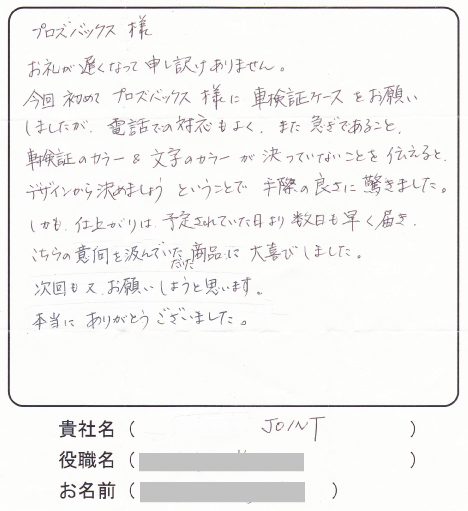 プロズバックス 様
お礼が遅くなって申し訳けありません。
今回初めて プロズバックス 様に 車検証ケース をお願い
しましたが、電話での対応もよく、また 急ぎであること、
車検証のカラー & 文字のカラー が 決っていないことを 伝えると、
デザインから決めましょう ということで 手際の良さに 驚きました。
しかも、仕上がりは、予定されていた日より 数日も早く届き、
こちらの意向を汲んでいただいた 商品に 大喜びしました。
次回も又、お願いしようと思います。
本当に ありがとう ございました。
貴社名( JOINT )
役職名( )
お名前( )